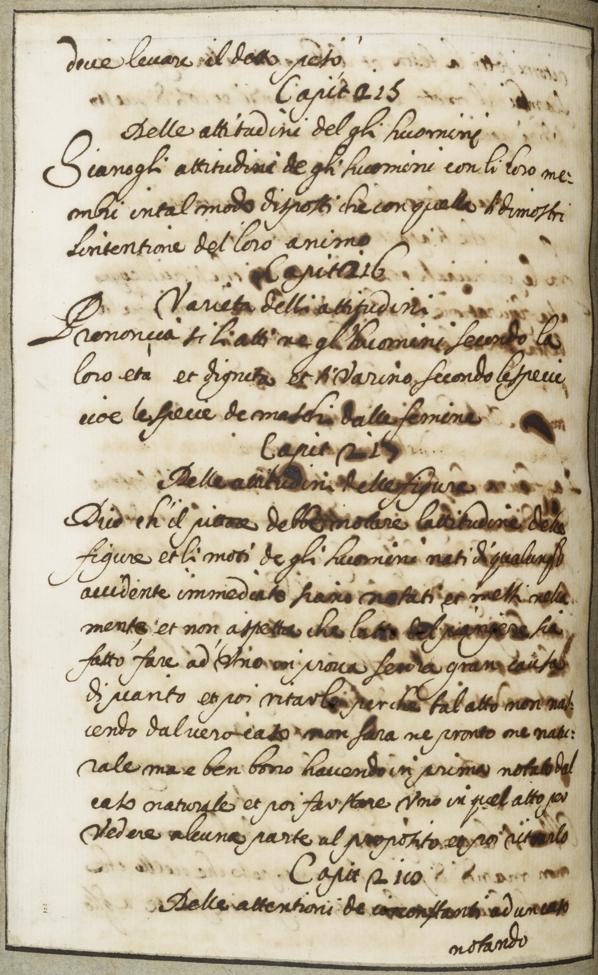 deve levare il detto peso
Capit 215
Delle attitudini del gli huomini
Sianogli attitudini de gli huomini con li loro me=
mbri in tal modo disposti che con quelle si dimostri
l'intentione del loro animo
Capit 216
Varieta delli attitudini
Prononcia si li atti ne gl'huomini secondo la
loro eta et dignita et si Varino secondo le specie
cioe le specie de maschi dalle femine
Capit 217
Delle attitudini delle figure
Dico ch'il pittore debbe notare l'attitudine delle
figure et li moti de gli huomini nati di qualunq3
accidente immediato siano notati et messi nella
mente et non aspetta che l'atto del piangere sia
fatto fare ad Uno in prova senza gran causa
di pianto et poi ritarlo perche tal atto non nas:
cendo dal vero caso non sara ne pronto ne natu:
rale ma e ben bono havendo in prima notato dal
caso naturale et poi far stare Uno in quel atto per
Vedere alcuna parte al proposito et poi ritrarlo
Capit 218
Delle attentioni de circonstanti ad un caso
notando